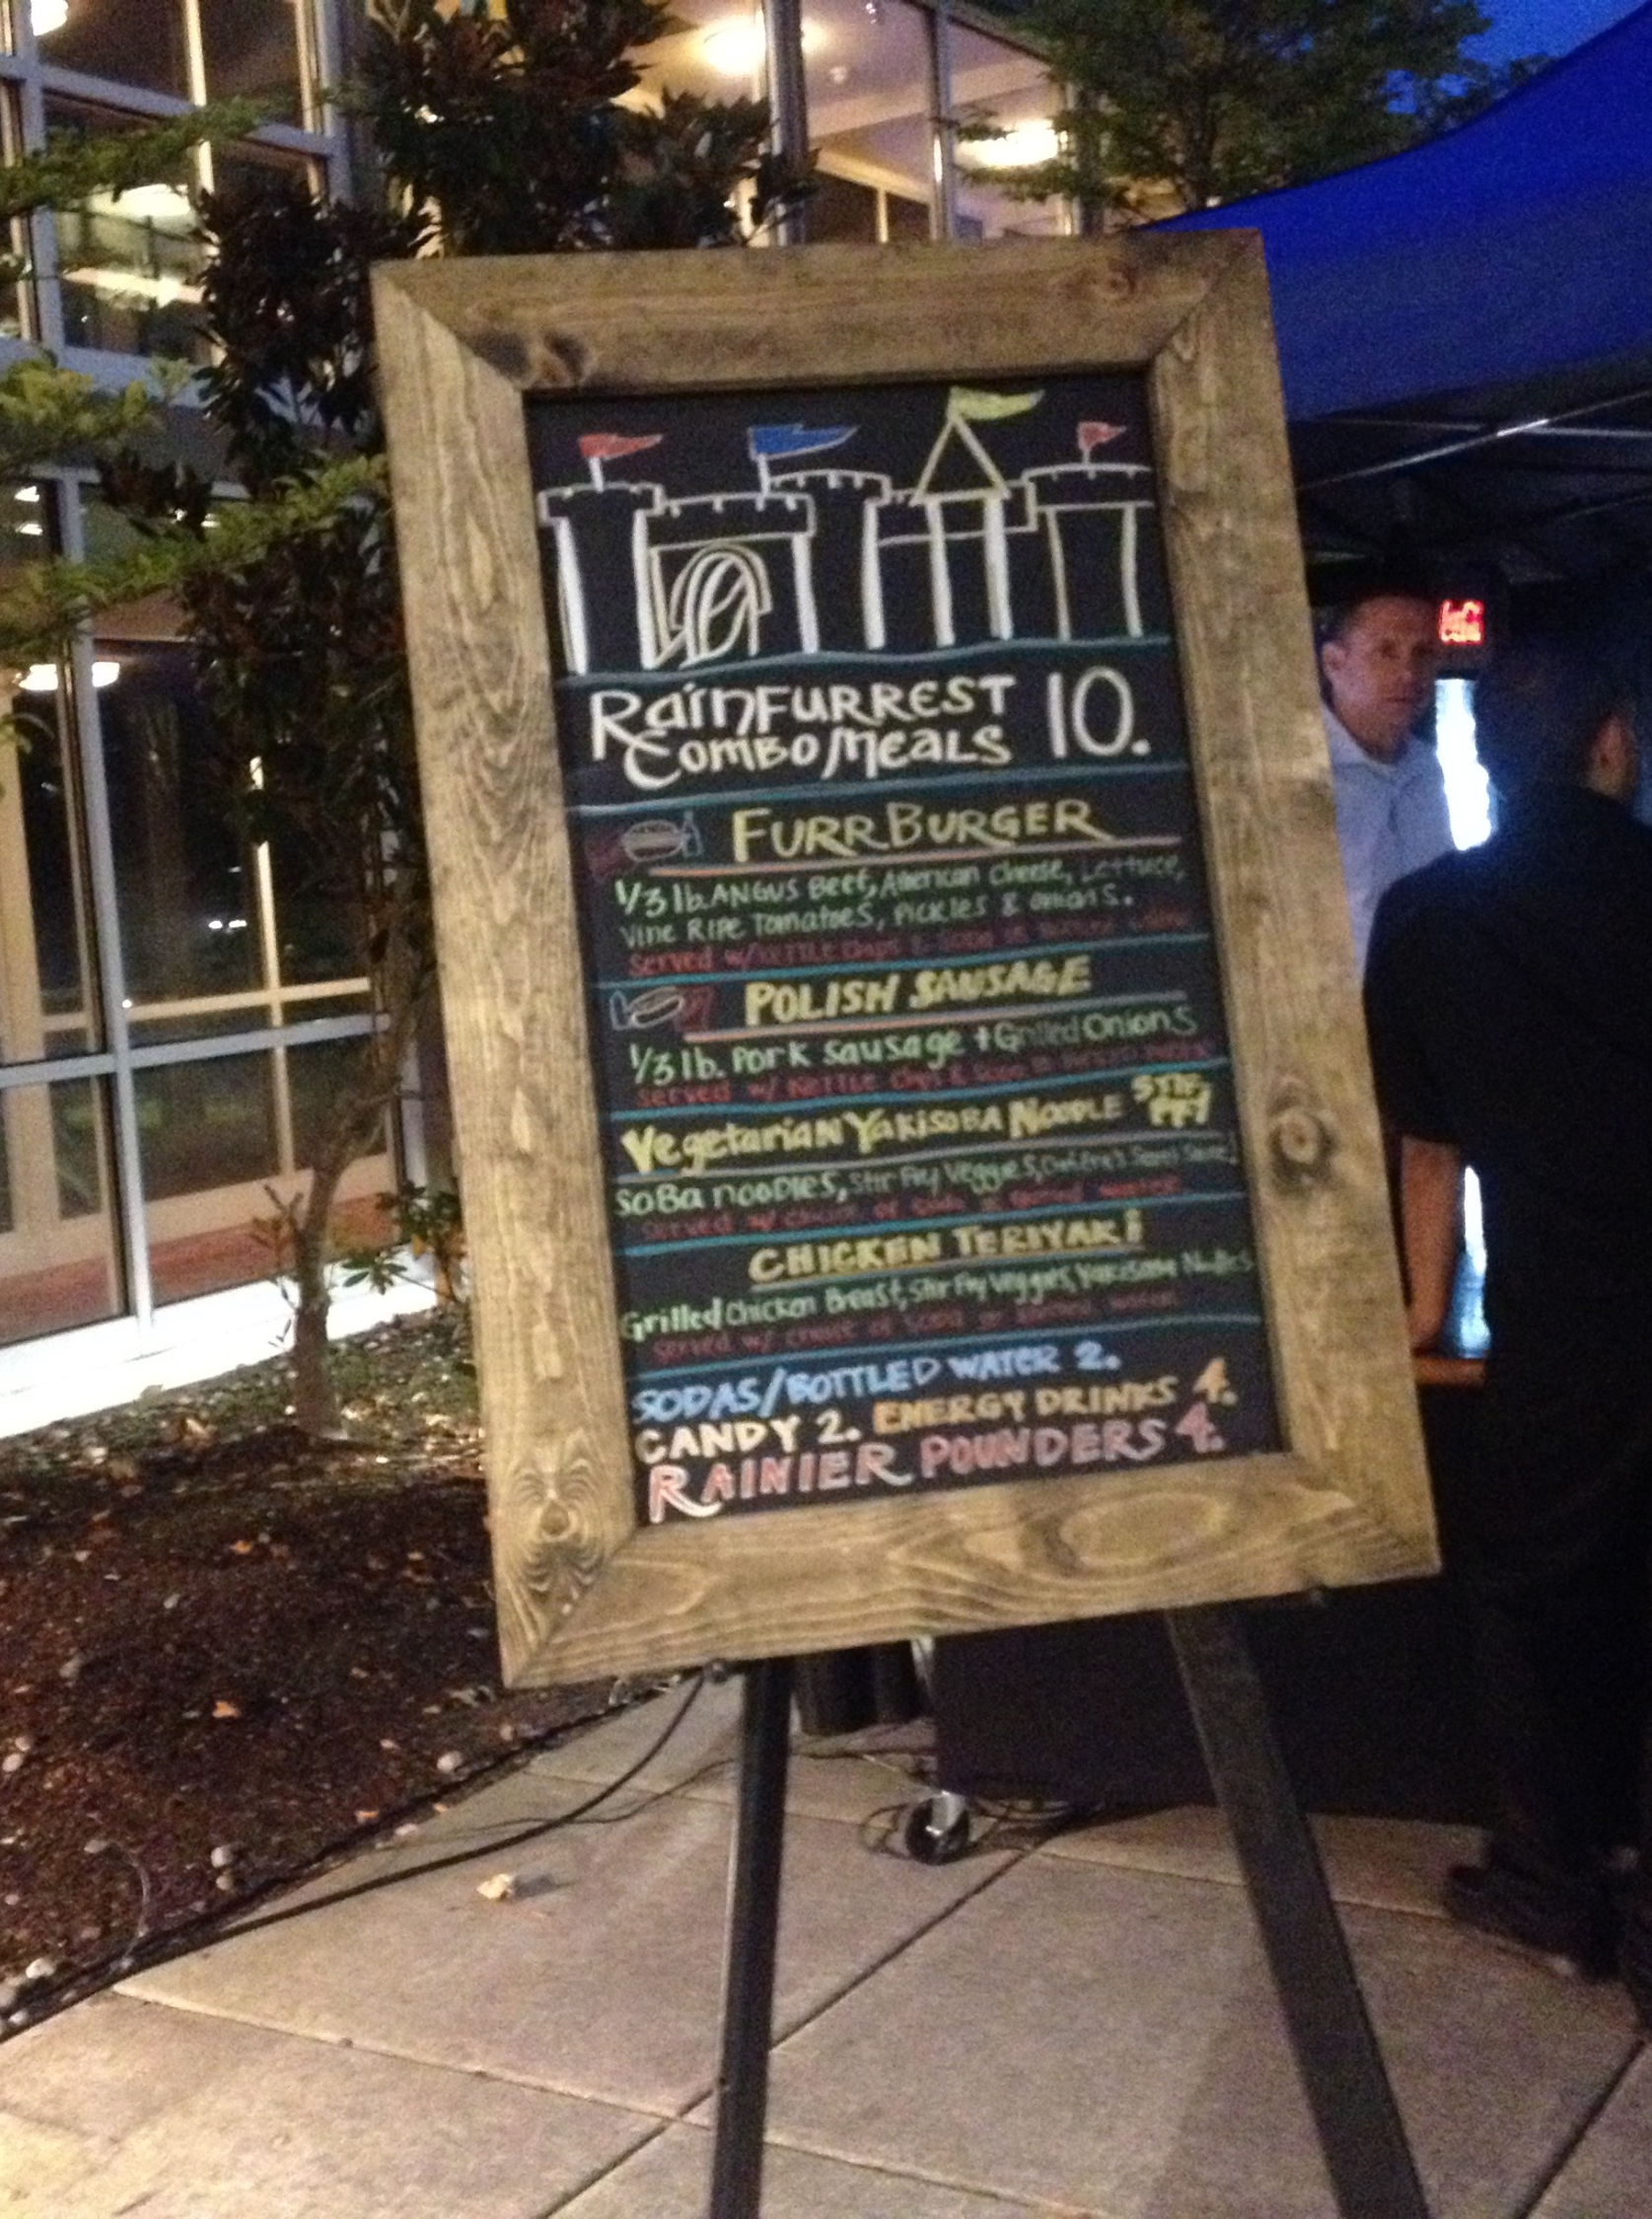 RainFURREST 10.
Combo/Meals
FURRBURGER
1/3 lb. ANGUS Beef, American Cheese, Lettuce,
Vine Ripe Tomatoes, Pickles & onions.
Served w/ KETTLE Chips & Soda or Bottled Water
POLISH SAUSAGE
1/3 lb. Pork Sausage + Grilled Onions
Served w/ KETTLE Chips & Soda or Bottled Water
Vegetarian Yakisoba Noodle STIR FRY
SoBa noodles, Stir Fry Veggies,
Served w/ choice of Soda or Bottled water
CHICKEN TERIYAKi
Grilled Chicken Breast, Stir Fry Veggies, Yakisoba Noodles
Served w/ choice of Soda or Bottled water
SODAS/BOTTLED WATER 2.
CANDY 2. ENERGY DRINKS 4.
RAINIER POUNDERS 4.